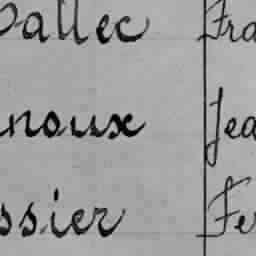 Dallec Fra
noux Jea
ssier Fer